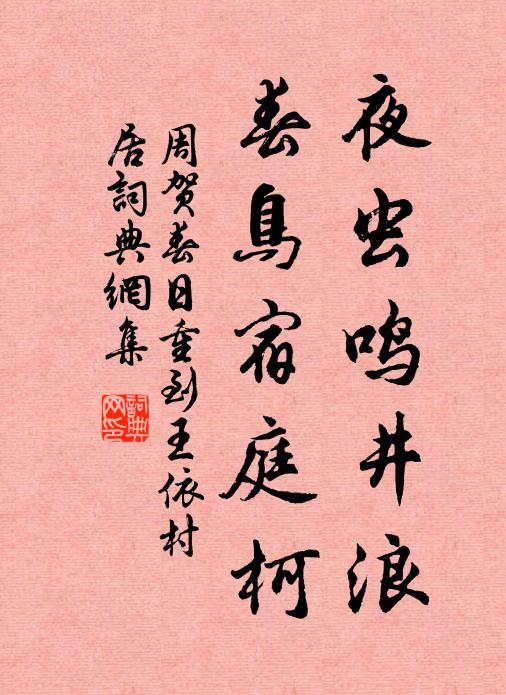 夜虫鸣井浪
春鳥宿庭柯
周贺春日重到王依村
居詞典網集
詞典網印